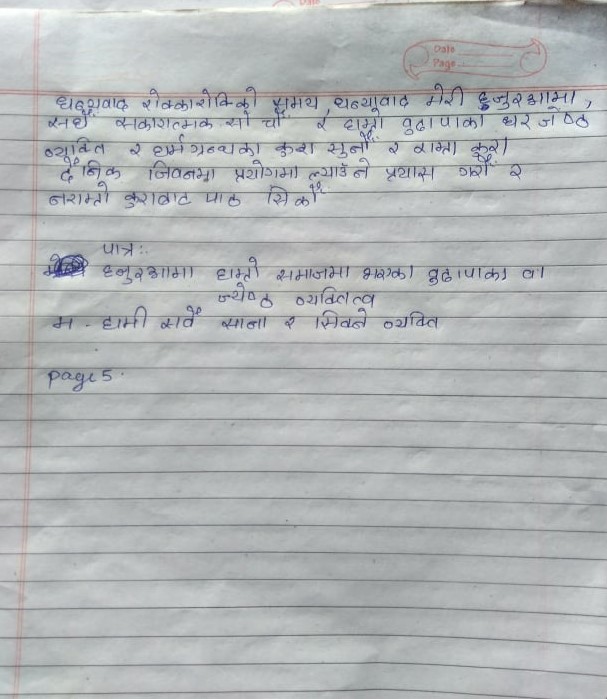 Date
Page
धन्यवाद रोक्काशेविको समय, धन्यवाद मेरी हजुरआमा,
सधैं सकारात्मक सोचौं र हाम्रा वुढापाका घर जेष्ठ
व्यक्ति र धर्मग्रन्थका कुरा सुनौं र राम्रा कुरा
दैनिक जिवनमा प्रयोगमा ल्याउने प्रयास गरौं र
नराम्रो कुरावाट पाठ सिकौं
पात्र:
हजुरआमा हाम्रो समाजमा भएका वुढापाका वा
ज्येष्ठ व्यक्तित्व
म - हामी सवै साना र सिक्ने व्यक्ति
page 5.